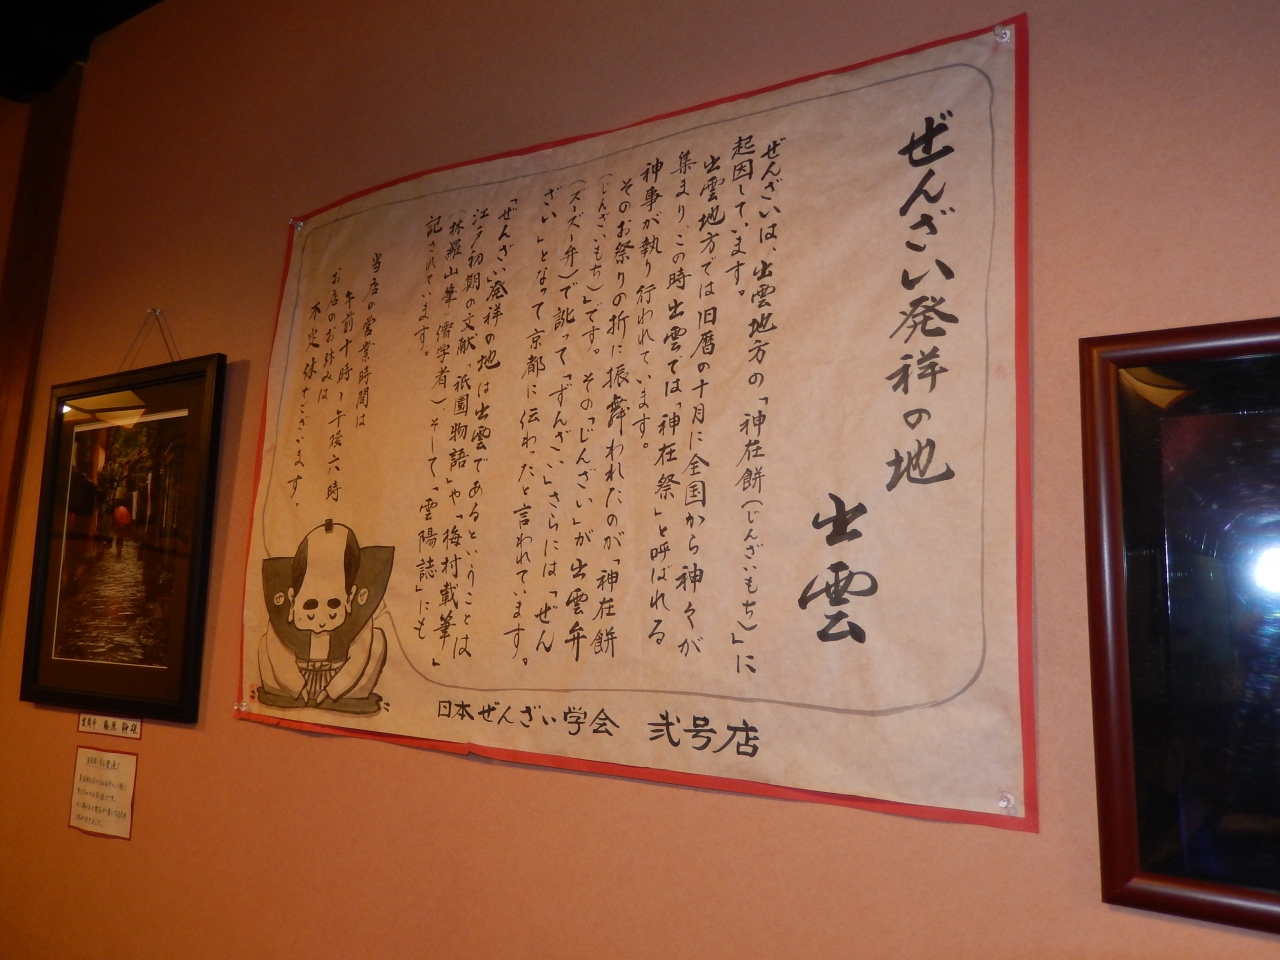 ぜんざい発祥の地
出雲
ぜんざいは、出雲地方の「神在餅(じんざいもち)」に
起因しています。
出雲地方では旧暦の十月に全国から神々が
集まり、この時出雲では「神在祭」と呼ばれる
神事が執り行われています。
そのお祭りの折に振舞われたのが「神在餅
(じんざいもち)」です。その「じんざい」が出雲弁
(ズーズー弁)で訛って「ずんざい」さらには「ぜん
ざい」となって京都に伝わったと言われています。
「ぜんざい発祥の地は出雲であるということは
江戸初期の文献「祇園物語」や「梅村載筆」
(林羅山筆・儒学者)、そして「雲陽誌」にも
記されています。
当店の営業時間は
午前十時〜午後六時
お店のお休みは
不定休でございます。
日本ぜんざい学会 弐号店